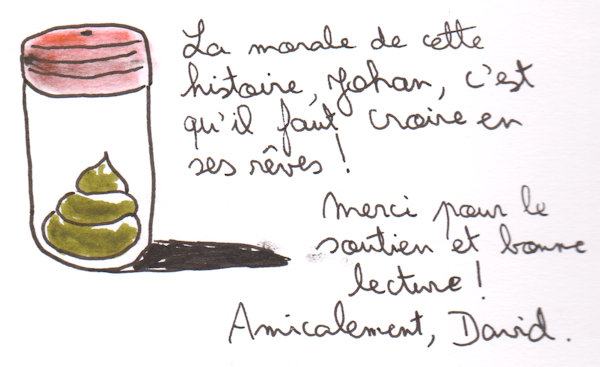 La morale de cette
histoire, Johan, c'est
qu'il faut croire en
ses rêves !
Merci pour le
soutien et bonne
lecture !
Amicalement, David.